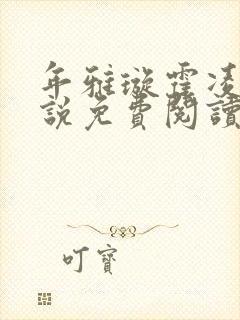 年雅璇霍凌
說免費閱讀
叮寶